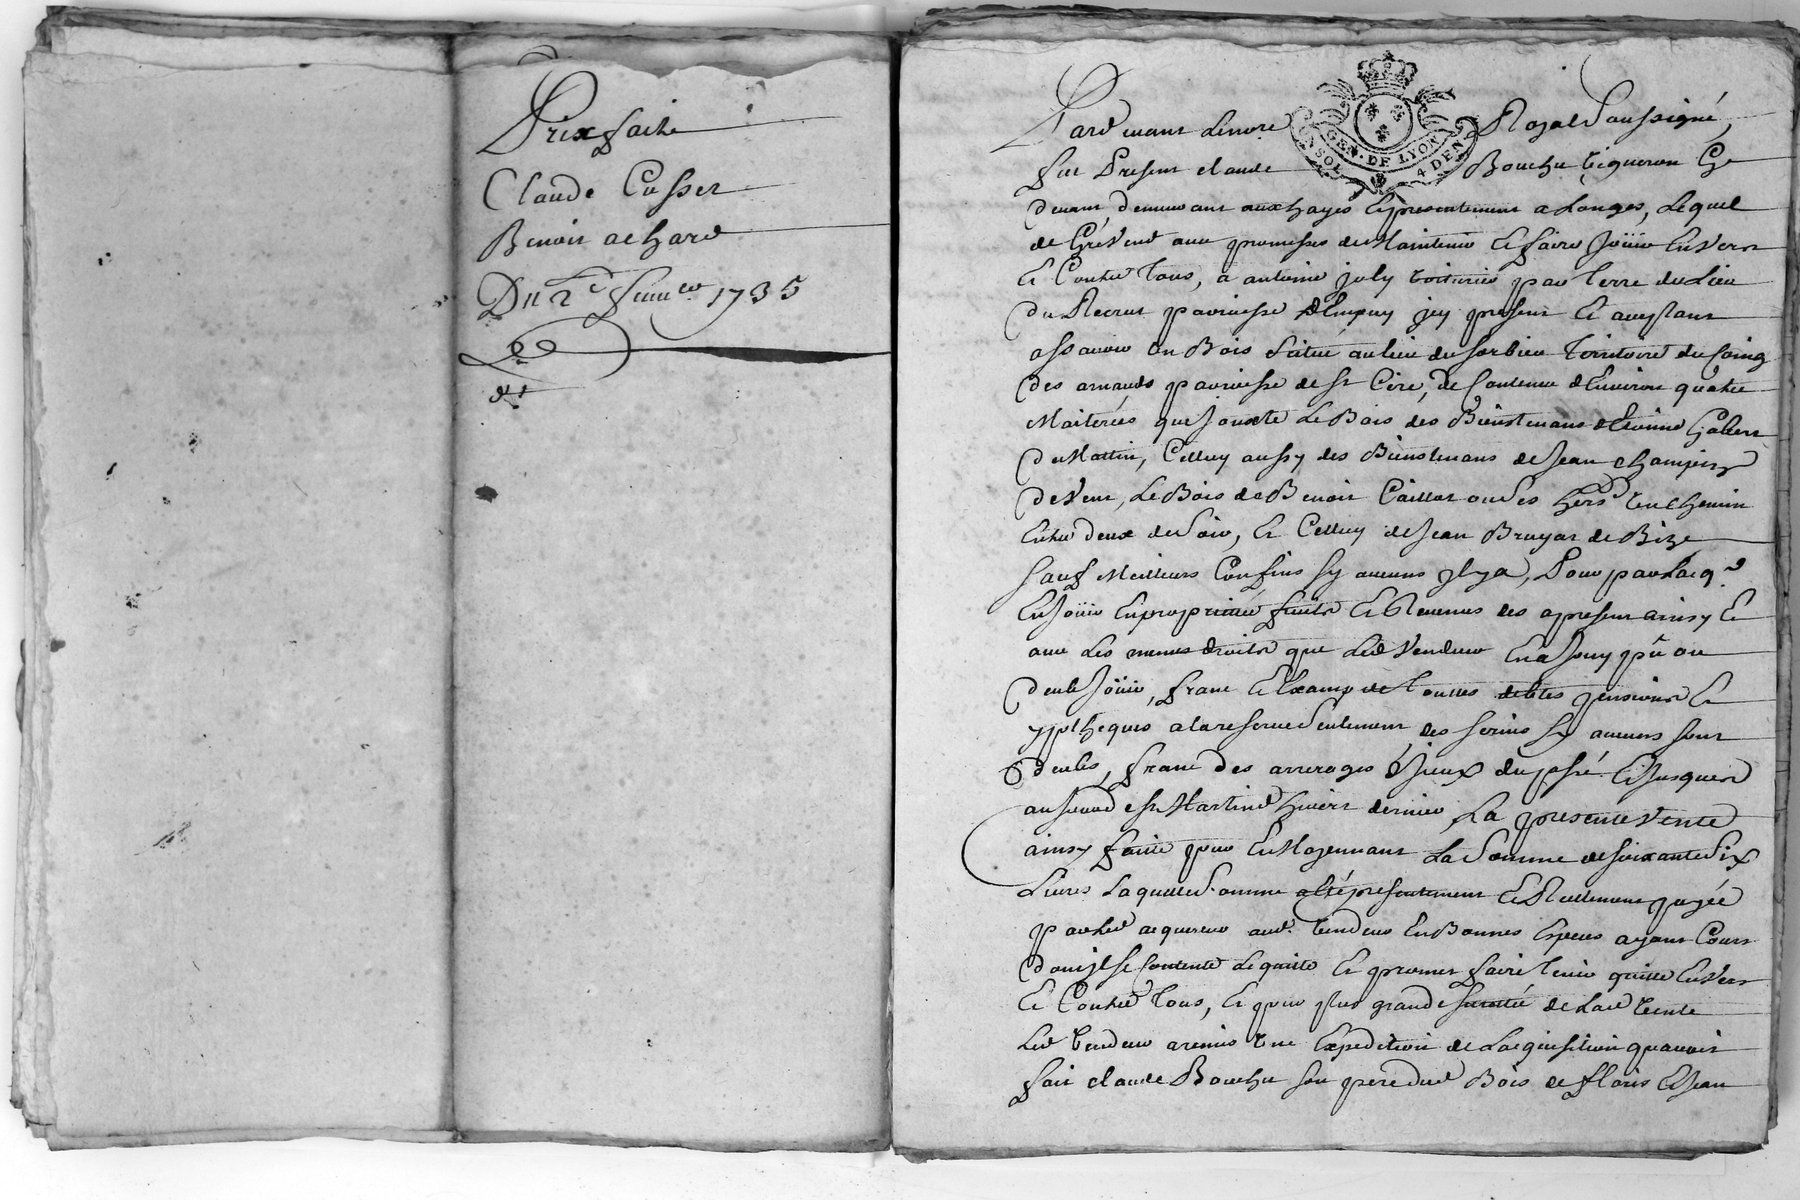 Prixfaite
Claude Cusset
Benoit achard
Du 2e Janvier 1735
Pardevant Lenore Royal Soussigné,
GEN. DE LYON
SOL 4 DEN
fut Present claude Bouchu vigneron Cy
devant demeurant aux hayes Et presentement a Longes, Lequel
de Gré Vend avec promesses de Maintenir Et faire Joüir Envers
Et Contre Tous, a antoine joly voiturier par Terre du Lieu
Du Recrut parroisse d'Empuy jcy present Et aceptant
assavoir un Bois situé au lieu du sorbier Territoire du Coing
Des arnauds parroisse de st Cire, De Contenue d'Environ quatre
Maiterées que Jouxte Le Bois des Bienstenans d'Etienne
Du Mattin, Celluy aussy des Bienstenans de Jean
De Vent, Le Bois de Benoit Caillat ou ses hers. Un Chemin
Entre Deux de soir, Et Celluy de Jean Bruyas de Bize
Sauf Meilleurs Confins sy aucuns jl y a, Pour par Lacqr.
En Joüir En proprietté fruits Et Revenus des apresent ainsy Et
avec Les memes droits que Led Vendeur En a Jouy pû ou
Deub Joüir, franc Et Exampt de Touttes debtes pensions Et
ypotheques a la reserve seulement des servis sy aucuns sont
deubs, francs des arrerages d'jceux du passé Et Jusques
au jour de st Martin d'hiver dernier, La presente Vente
ainsy faitte pour Et Moyennant La Somme de soixante six
Livres Laquelle somme a Eté presentement Et Reellement payée
par led acquereur aud. Vendeur En Bonnes Especes ayant Cours
Dont jl se Contente Le quitte Et promet faire Tenir quitte Envers
Et Contre Tous, Et pour plus grande suretté de Lad Vente
Led Vendeur a remis Une Expedition de Lacquisition quavoit
fait claude Bouchu son pere dud Bois de floris Et Jean